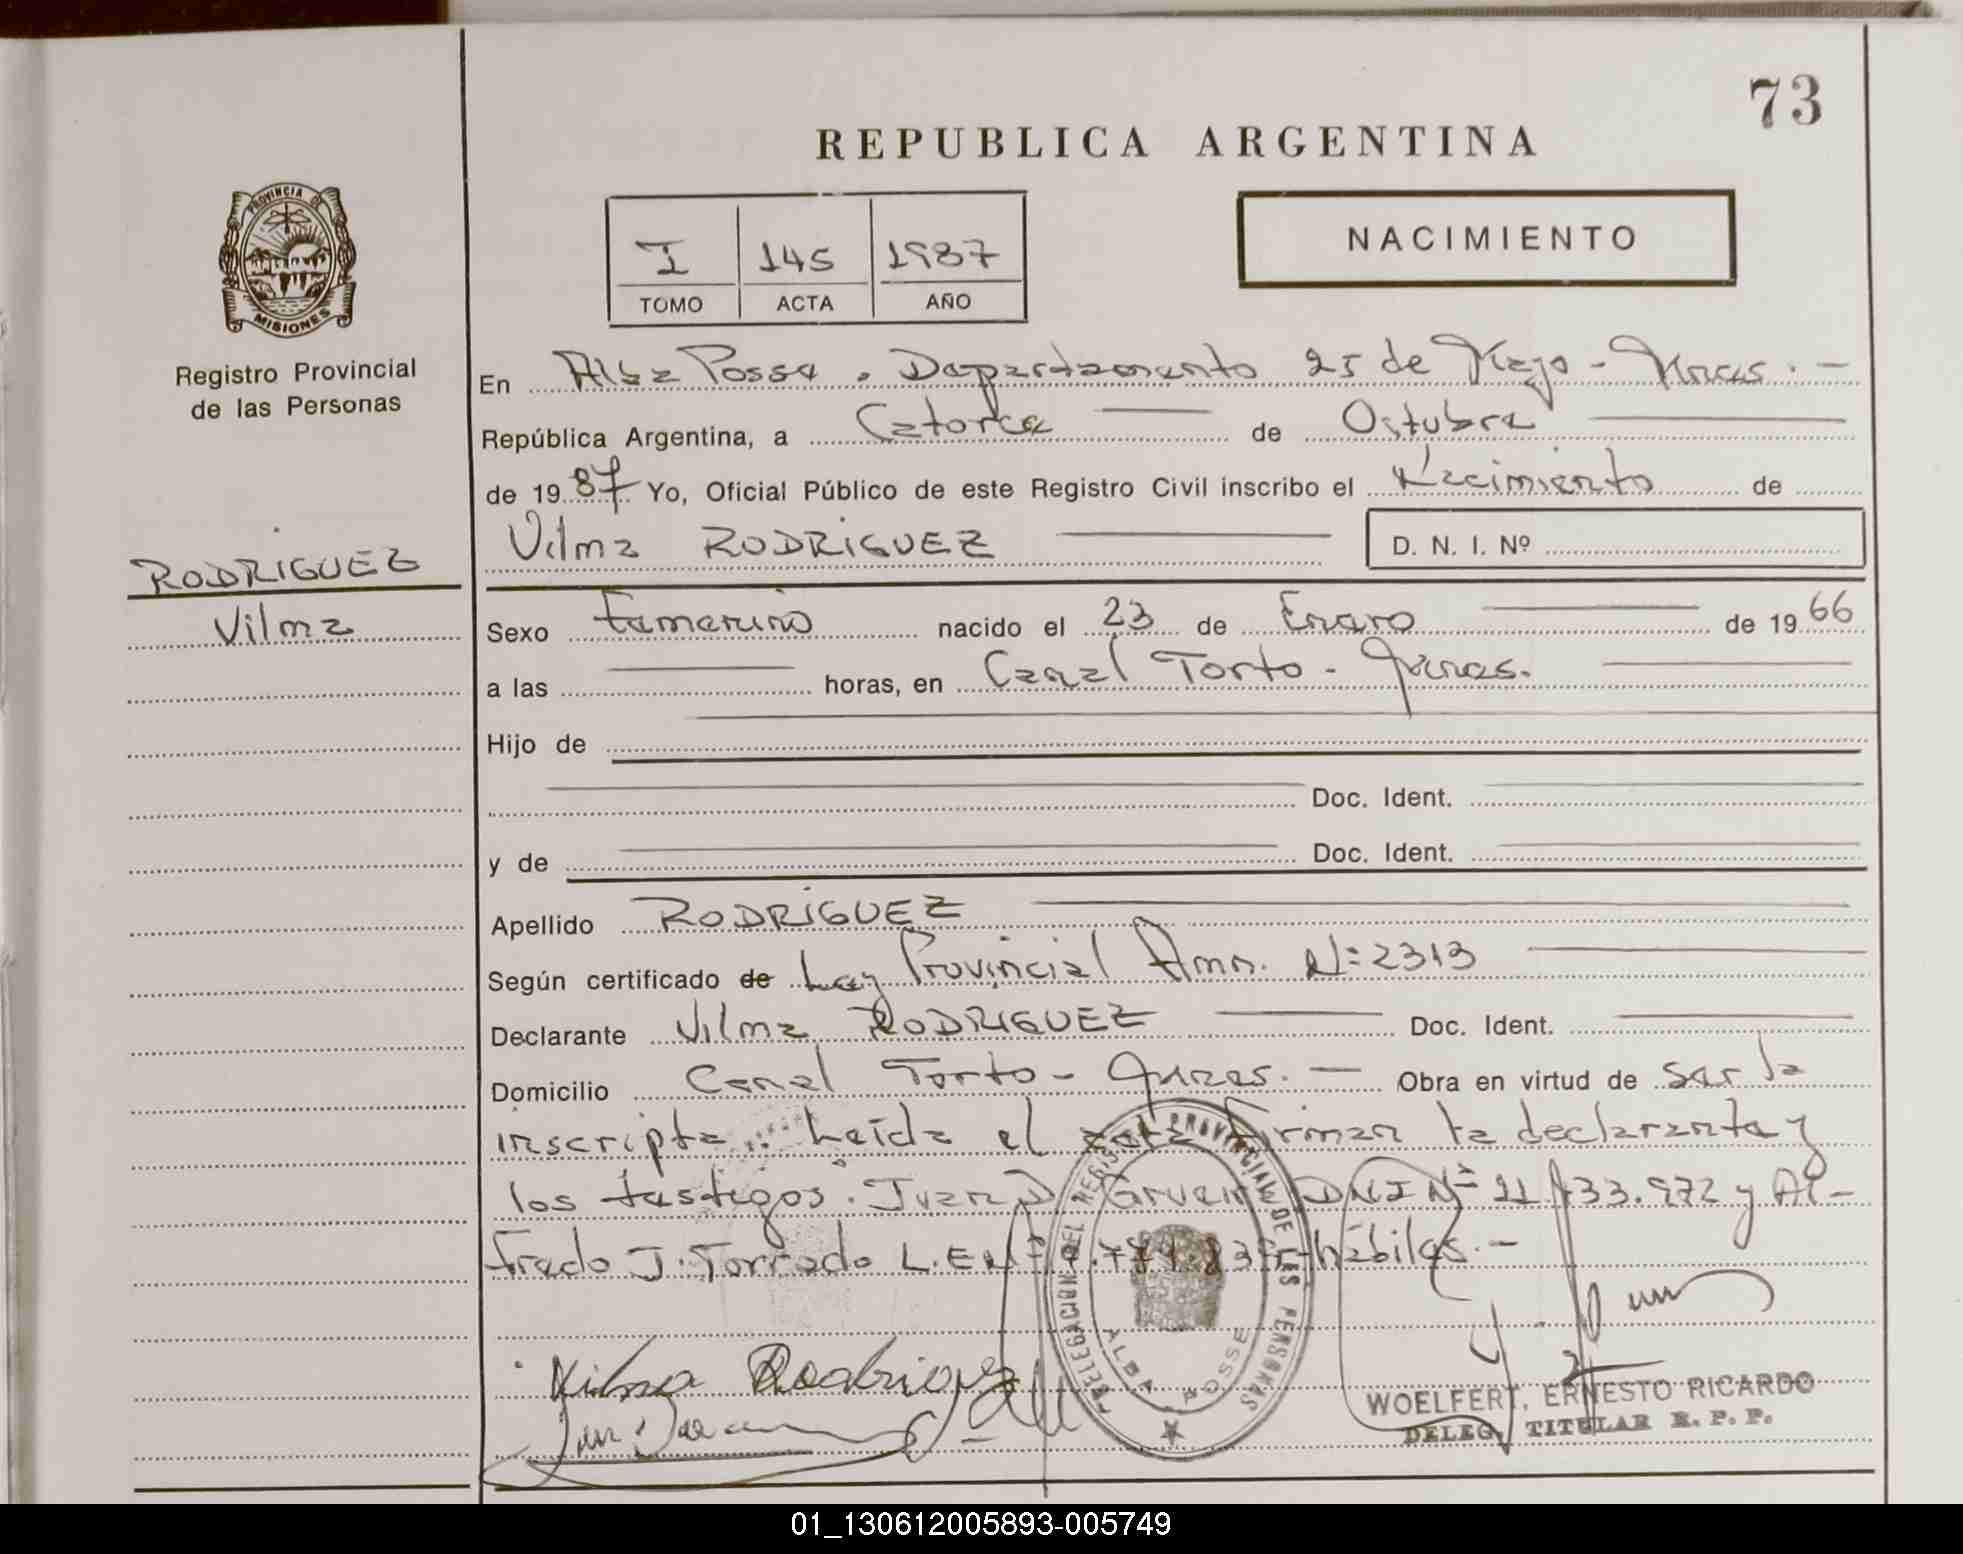 73
REPUBLICA ARGENTINA
PROVINCIA DE
MISIONES
Registro Provincial
de las Personas
I 145 1987
TOMO ACTA AÑO
NACIMIENTO
En Alba Posse, Departamento 25 de Mayo - Mnes. -
República Argentina, a Catorce de Octubre
de 1987 Yo, Oficial Público de este Registro Civil inscribo el Nacimiento de
Vilma RODRIGUEZ D. N. I. Nº
RODRIGUEZ
Vilma
Sexo Femenino nacido el 23 de Enero de 1966
a las horas, en Canal Torto - Mnes.
Hijo de
Doc. Ident.
y de Doc. Ident.
Apellido RODRIGUEZ
Según certificado de Ley Provincial Nº 2313
Declarante Vilma RODRIGUEZ Doc. Ident.
Domicilio Canal Torto - Obra en virtud de ser la
inscripta. Leída el acta firman la declarante y
los testigos. Juan D DNI Nº y Al-
fredo J. Torrado L.E Nº hábiles. -
DELEGACION DEL REGISTRO PROVINCIAL DE LAS PERSONAS
ALBA POSSE
Vilma Rodriguez
WOELFERT, ERNESTO RICARDO
DELEG. TITULAR R. P. P.
01_130612005893-005749